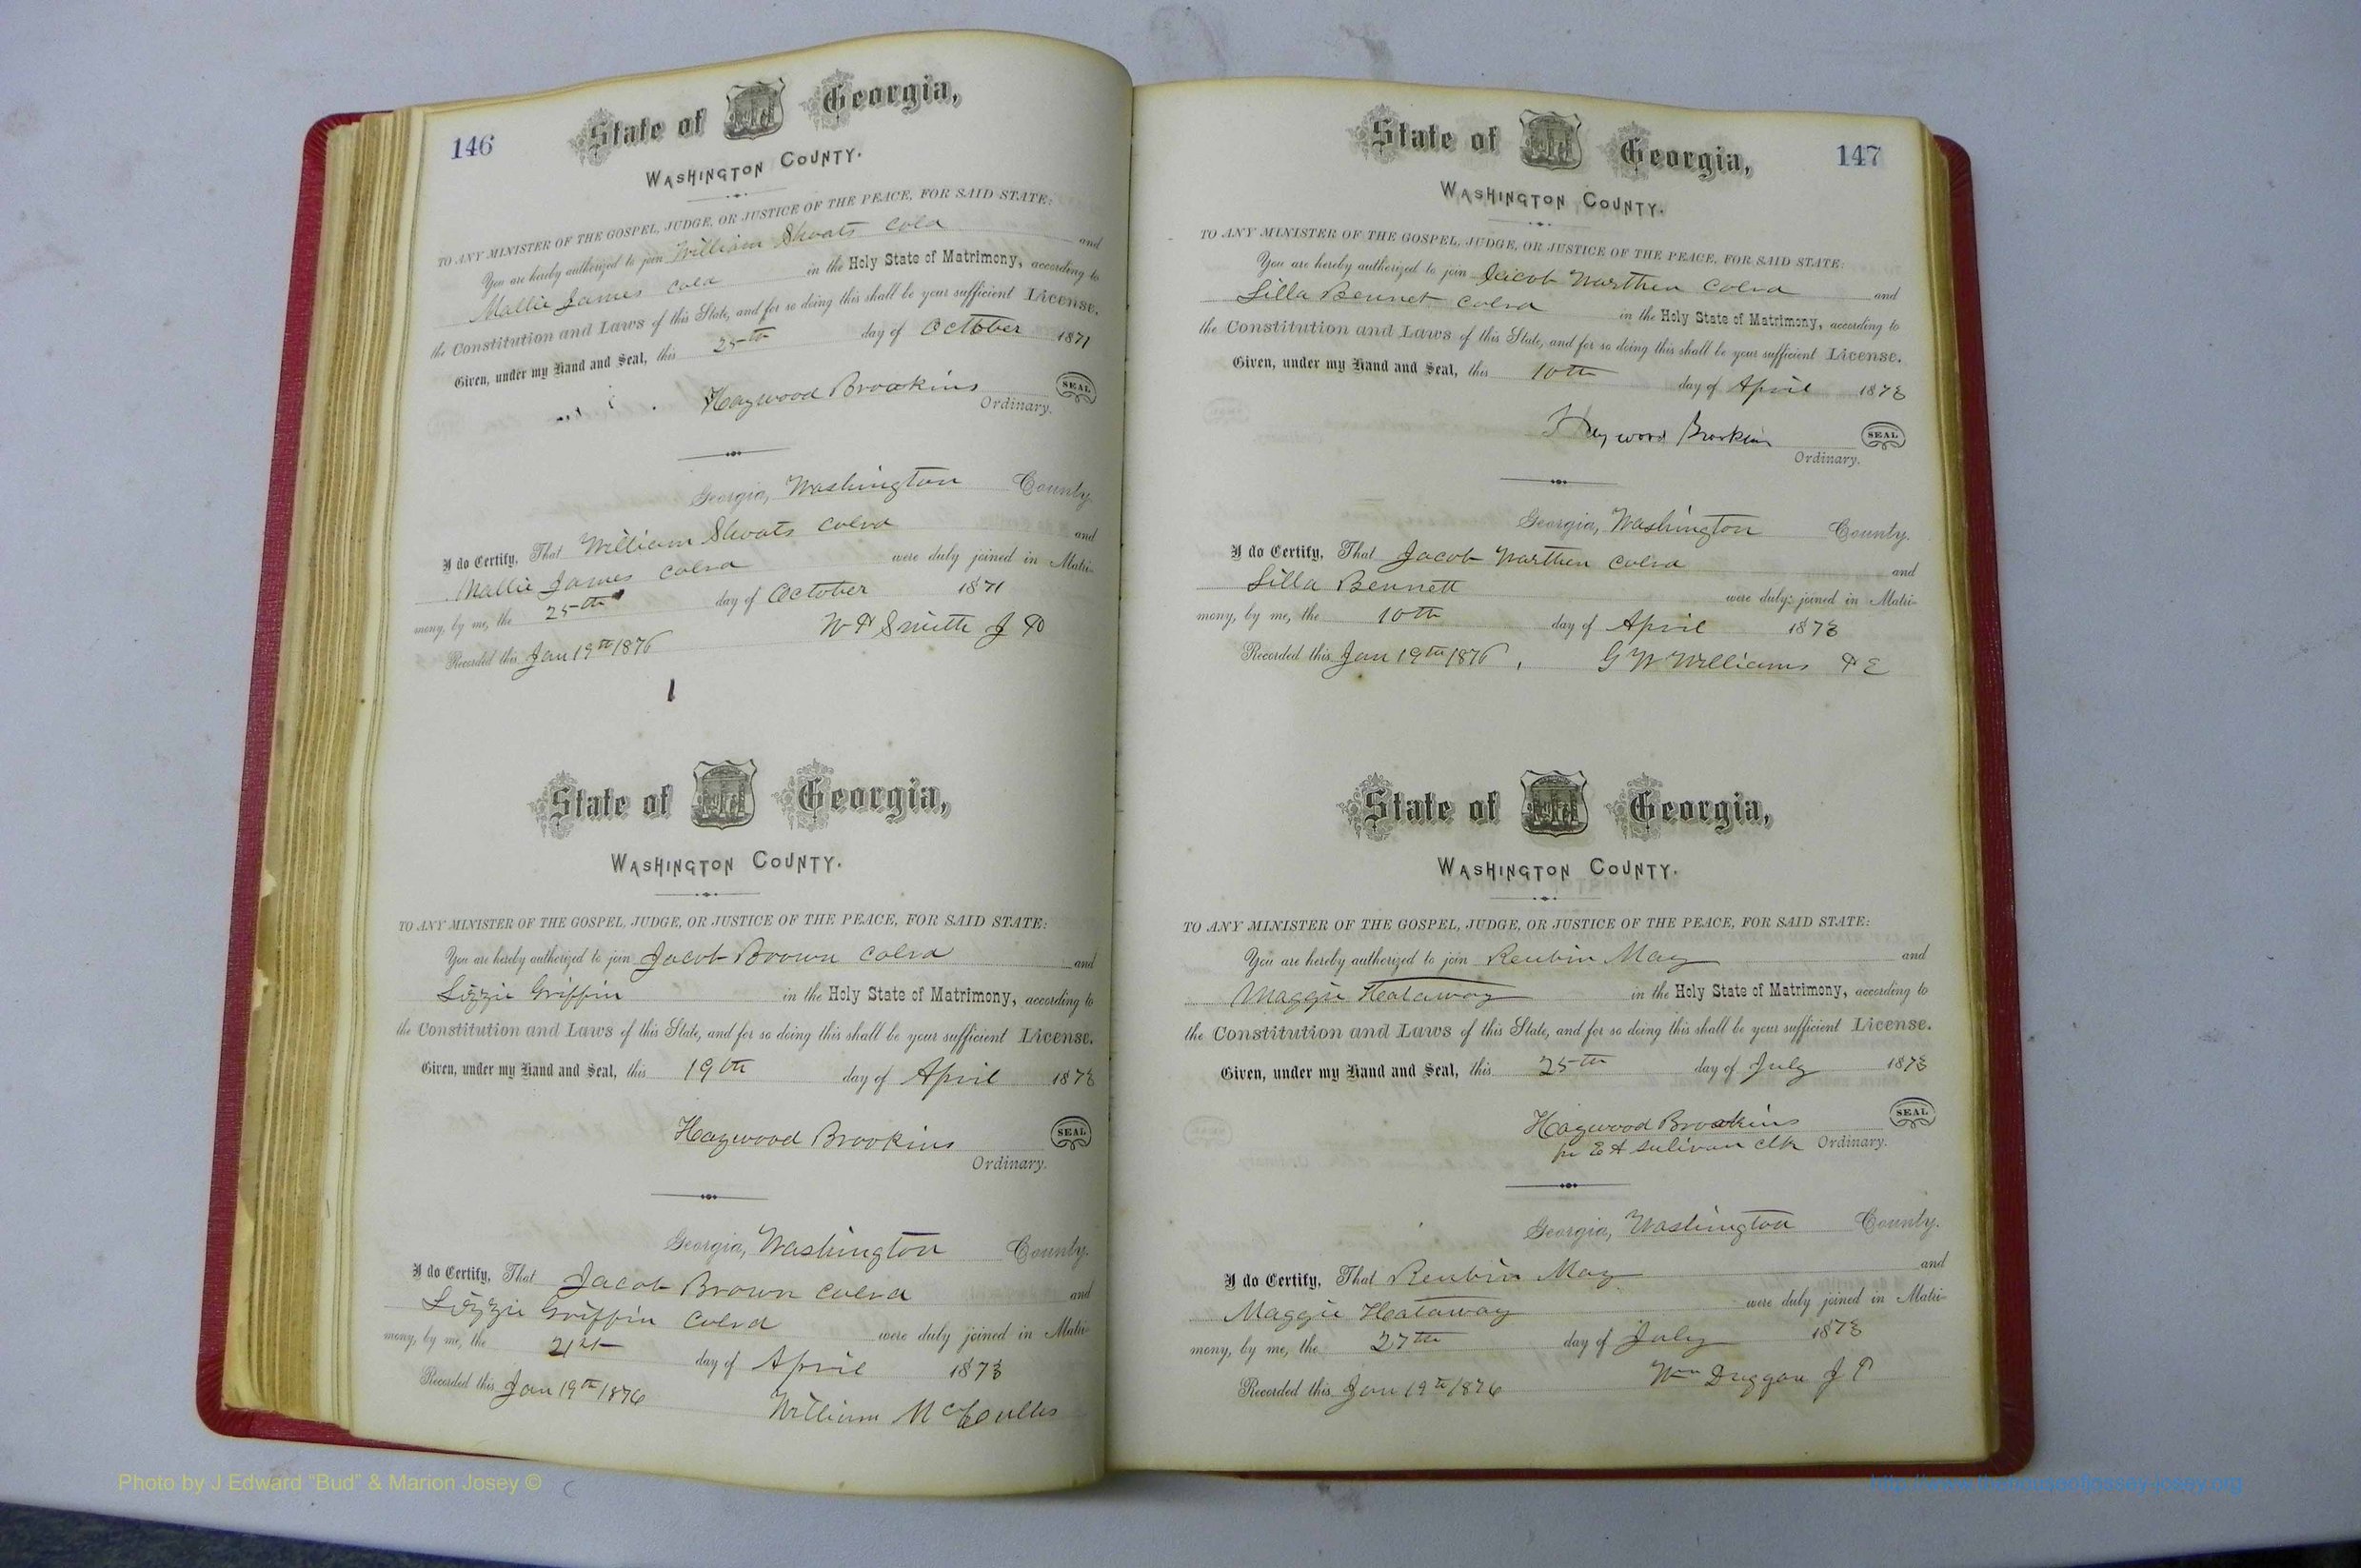 146
State of Georgia,
WASHINGTON COUNTY.
TO ANY MINISTER OF THE GOSPEL, JUDGE, OR JUSTICE OF THE PEACE, FOR SAID STATE:
You are hereby authorized to join William Shoats Cold and
Mallie James Cold in the Holy State of Matrimony, according to
the Constitution and Laws of this State, and for so doing this shall be your sufficient License.
Given, under my Hand and Seal, this 25th day of October 1871
Haywood Brookins SEAL
Ordinary.
Georgia, Washington County.
I do Certify, That William Shoats Colrd and
Mallie James Colrd were duly joined in Matri-
mony, by me, the 25th day of October 1871
Recorded this Jan 19th 1876 W P Smith J P
State of Georgia,
WASHINGTON COUNTY.
TO ANY MINISTER OF THE GOSPEL, JUDGE, OR JUSTICE OF THE PEACE, FOR SAID STATE:
You are hereby authorized to join Jacob Brown Colrd and
Lizzie Griffin in the Holy State of Matrimony, according to
the Constitution and Laws of this State, and for so doing this shall be your sufficient License.
Given, under my Hand and Seal, this 19th day of April 1873
Haywood Brookins SEAL
Ordinary.
Georgia, Washington County.
I do Certify, That Jacob Brown Colrd and
Lizzie Griffin Colrd were duly joined in Matri-
mony, by me, the 21st day of April 1873
Recorded this Jan 19th 1876
William
147
State of Georgia,
WASHINGTON COUNTY.
TO ANY MINISTER OF THE GOSPEL, JUDGE, OR JUSTICE OF THE PEACE, FOR SAID STATE:
You are hereby authorized to join Jacob Warthen Colrd and
Silla Bennet Colrd in the Holy State of Matrimony, according to
the Constitution and Laws of this State, and for so doing this shall be your sufficient License.
Given, under my Hand and Seal, this 10th day of April 1873
Haywood Brookins SEAL
Ordinary.
Georgia, Washington County.
I do Certify, That Jacob Warthen Colrd and
Silla Bennett were duly joined in Matri-
mony, by me, the 10th day of April 1873
Recorded this Jan 19th 1876, G W Williams P E
State of Georgia,
WASHINGTON COUNTY.
TO ANY MINISTER OF THE GOSPEL, JUDGE, OR JUSTICE OF THE PEACE, FOR SAID STATE:
You are hereby authorized to join Reubin May and
Maggie Hataway in the Holy State of Matrimony, according to
the Constitution and Laws of this State, and for so doing this shall be your sufficient License.
Given, under my Hand and Seal, this 25th day of July 1873
Haywood Brookins SEAL
pr E A Sulivan Clk Ordinary.
Georgia, Washington County.
I do Certify, That Reubin May and
Maggie Hataway were duly joined in Matri-
mony, by me, the 27th day of July 1873
Recorded this Jan 19th 1876 Wm Duggan J P
Photo by J Edward "Bud" & Marion Josey ©